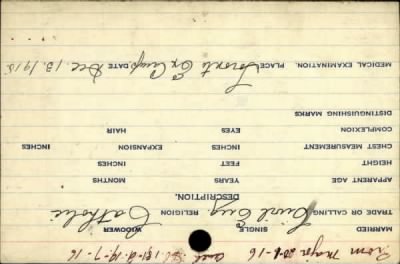 Prom Major 20-6-16
MARRIED SINGLE WIDOWER
TRADE OR CALLING Civil Eng. RELIGION Catholic
DESCRIPTION.
APPARENT AGE YEARS MONTHS
HEIGHT FEET INCHES
CHEST MEASUREMENT INCHES EXPANSION INCHES
COMPLEXION EYES HAIR
DISTINGUISHING MARKS
MEDICAL EXAMINATION. PLACE Toronto Ex Camp DATE Dec. 13. 1915